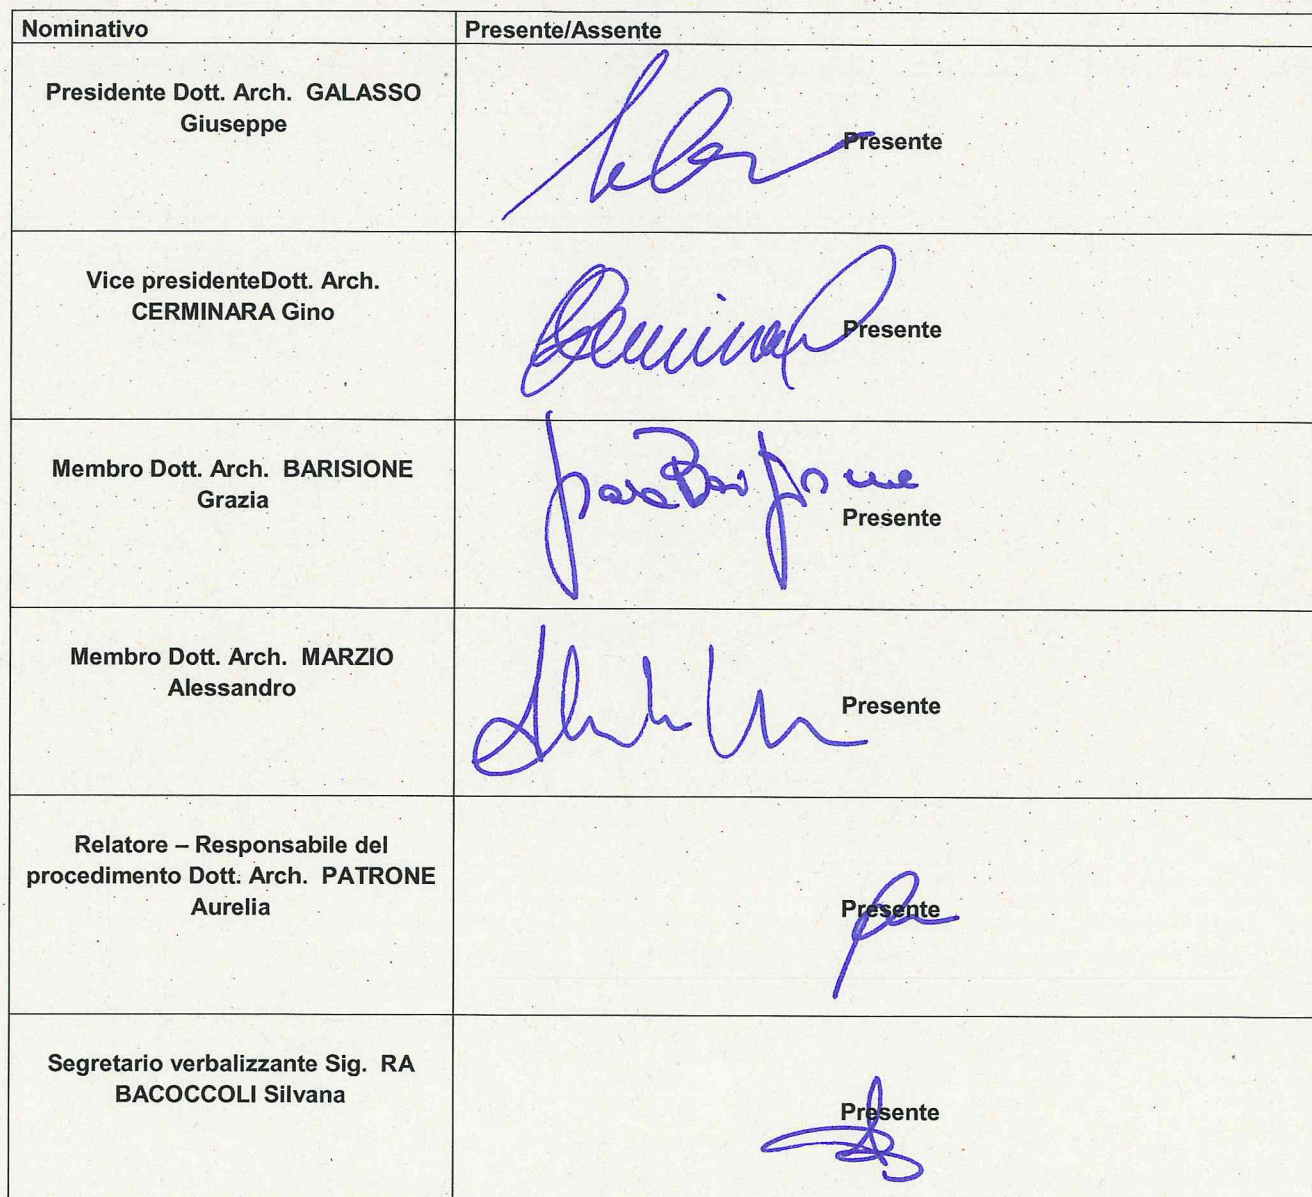 Nominativo
Presente/Assente
Presidente Dott. Arch. GALASSO
Giuseppe
Presente
Vice presidenteDott. Arch.
CERMINARA Gino
Presente
Membro Dott. Arch. BARISIONE
Grazia
Presente
Membro Dott. Arch. MARZIO
Alessandro
Presente
Relatore – Responsabile del
procedimento Dott. Arch. PATRONE
Aurelia
Presente
Segretario verbalizzante Sig. RA
BACOCCOLI Silvana
Presente